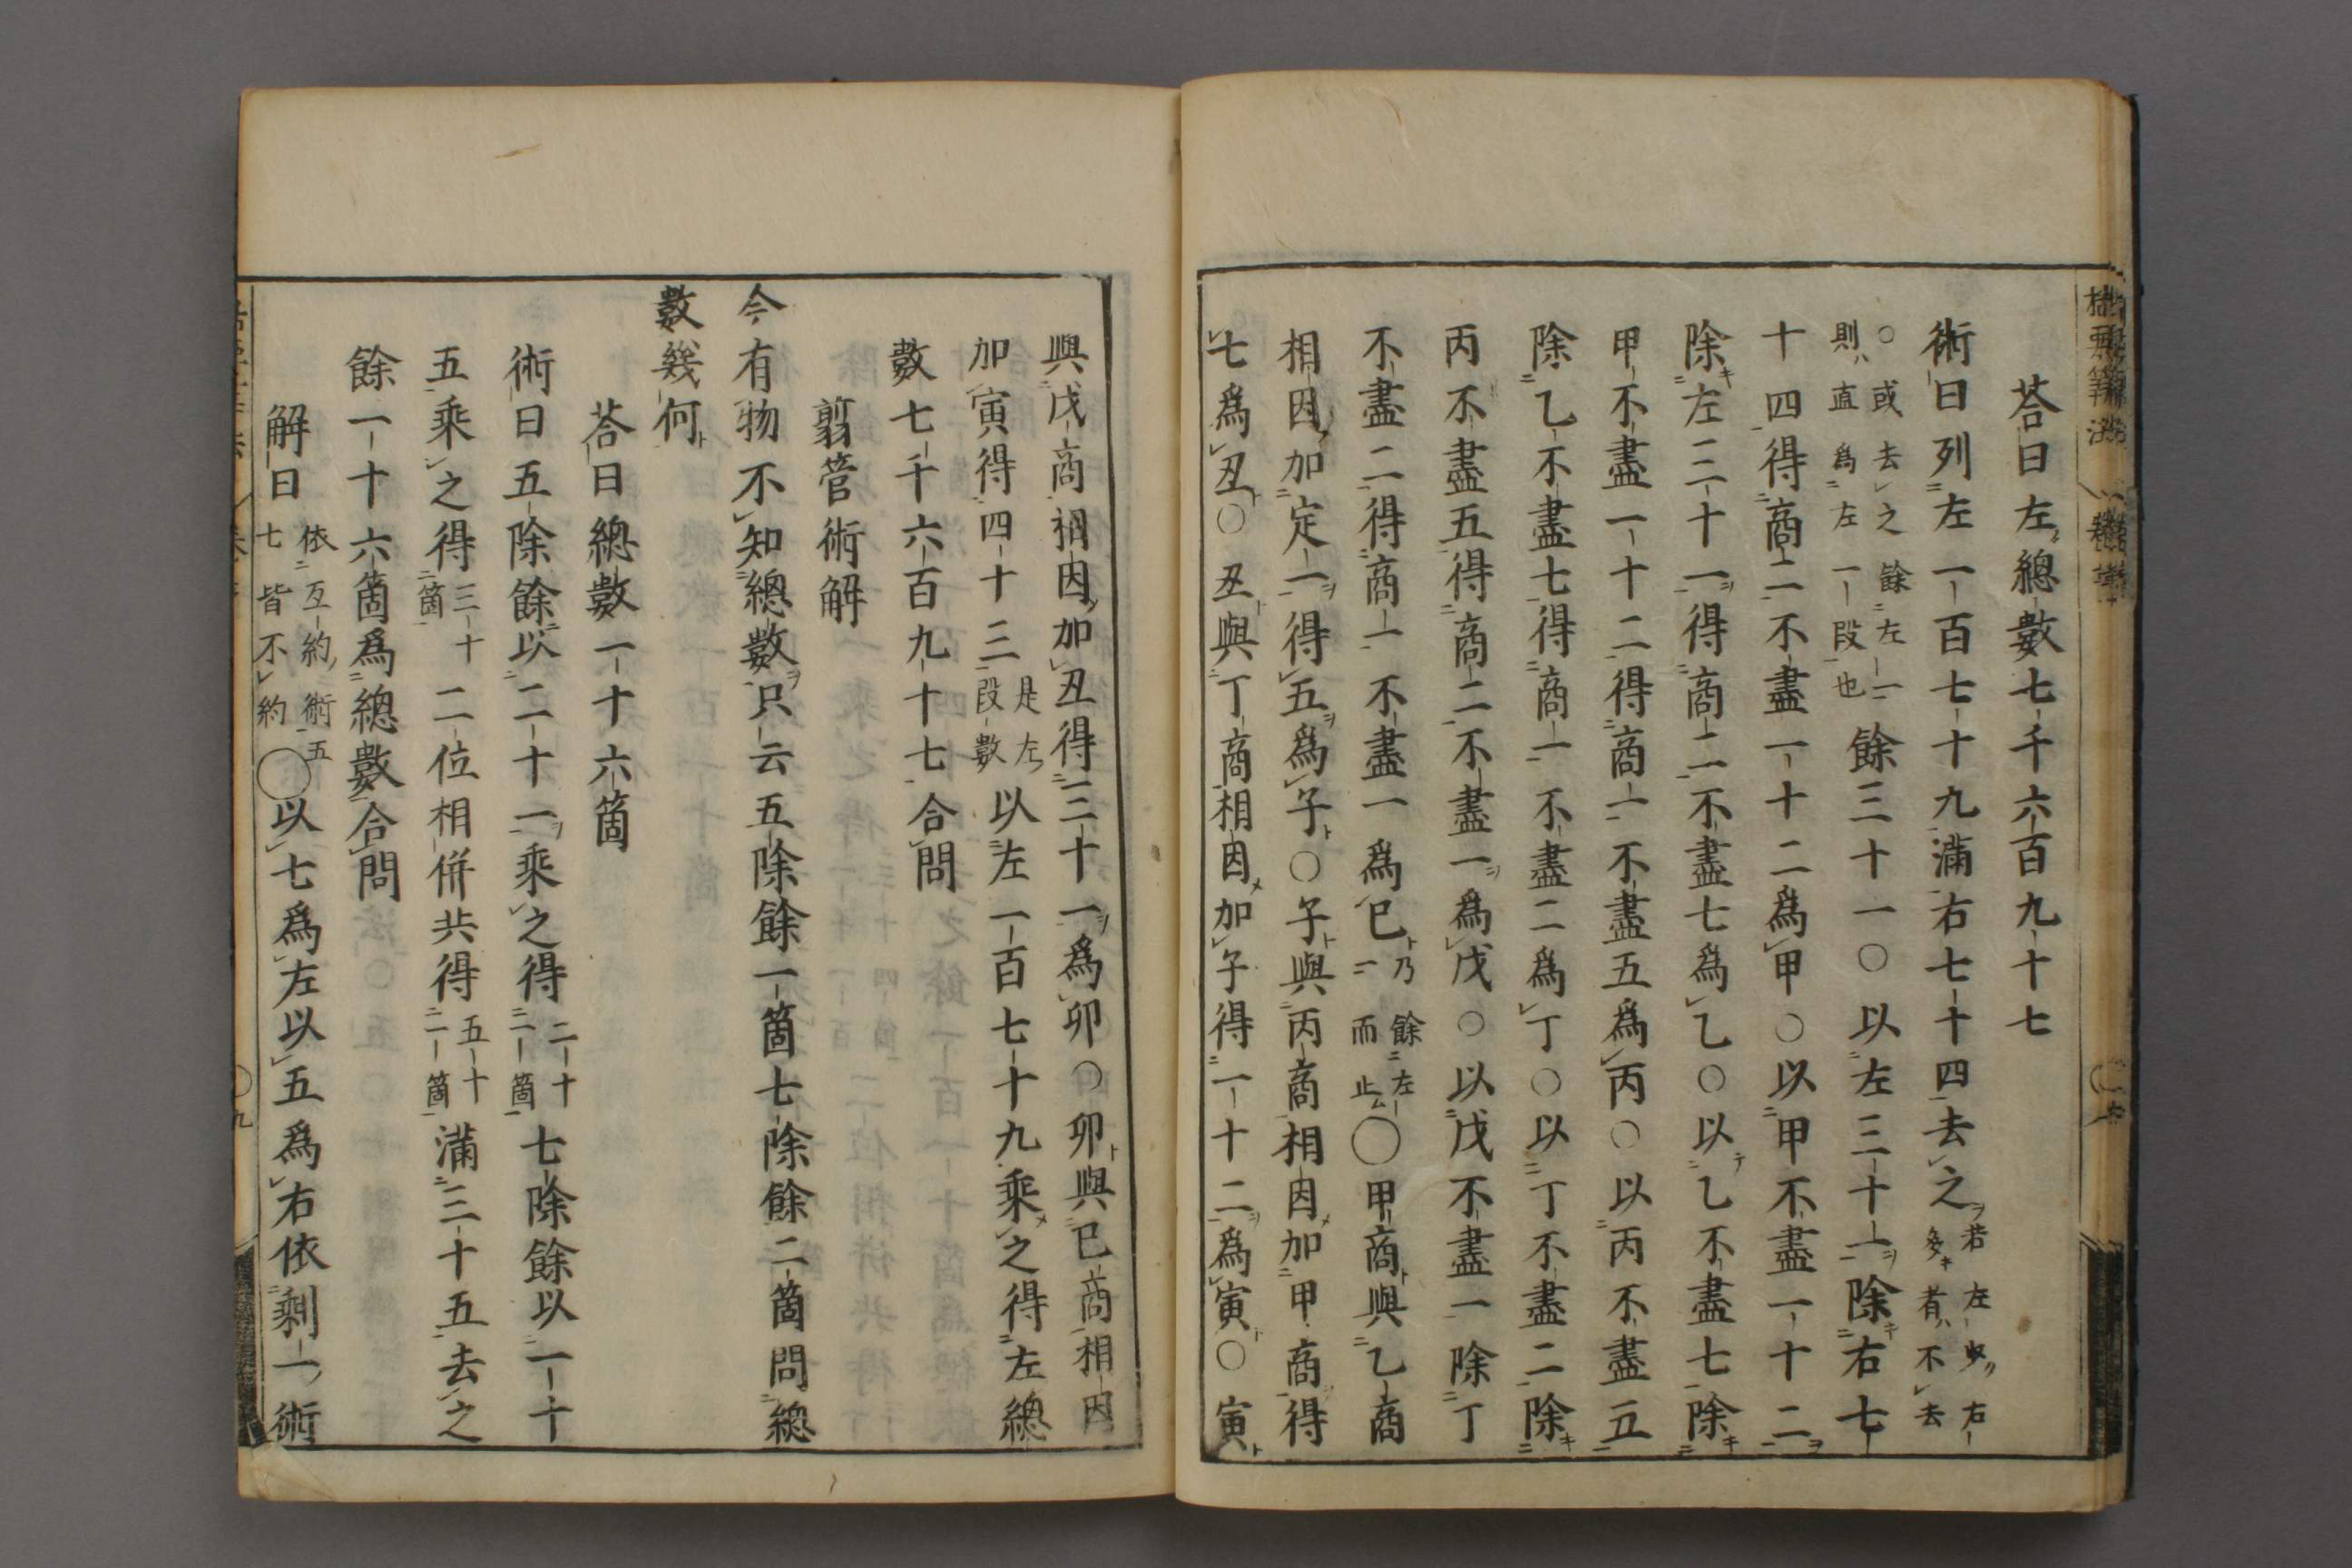 荅曰左總數七千六百九十七
術曰列左一百七十九滿右七十四去之若左少右多者不去
○或去之餘左一則直爲左一段也餘三十一○以左三十一除右七
十四得商二不盡一十二爲甲○以甲不盡一十二
除左三十一得商二不盡七爲乙○以乙不盡七除
甲不盡一十二得商一不盡五爲丙○以丙不盡五
除乙不盡七得商一不盡二爲丁○以丁不盡二除
丙不盡五得商二不盡一爲戊○以戊不盡一除丁
不盡二得商一不盡一爲己乃餘左一而止○甲商與乙商
相因加定一得五爲子○子與丙商相因加甲商得
七爲丑○丑與丁商相因加子得一十二爲寅○寅
與戊商相因加丑得三十一爲卯○卯與己商相因
加寅得四十三是左段數以左一百七十九乘之得左總
數七千六百九十七合問
翦管術解
今有物不知總數只云五除餘一箇七除餘二箇問總
數幾何
荅曰總數一十六箇
術曰五除餘以二十一乘之得二十一箇七除餘以一十
五乘之得三十箇二位相併共得五十一箇滿三十五去之
餘一十六箇爲總數合問
解曰依互約術五七皆不約○以七爲左以五爲右依剩一術